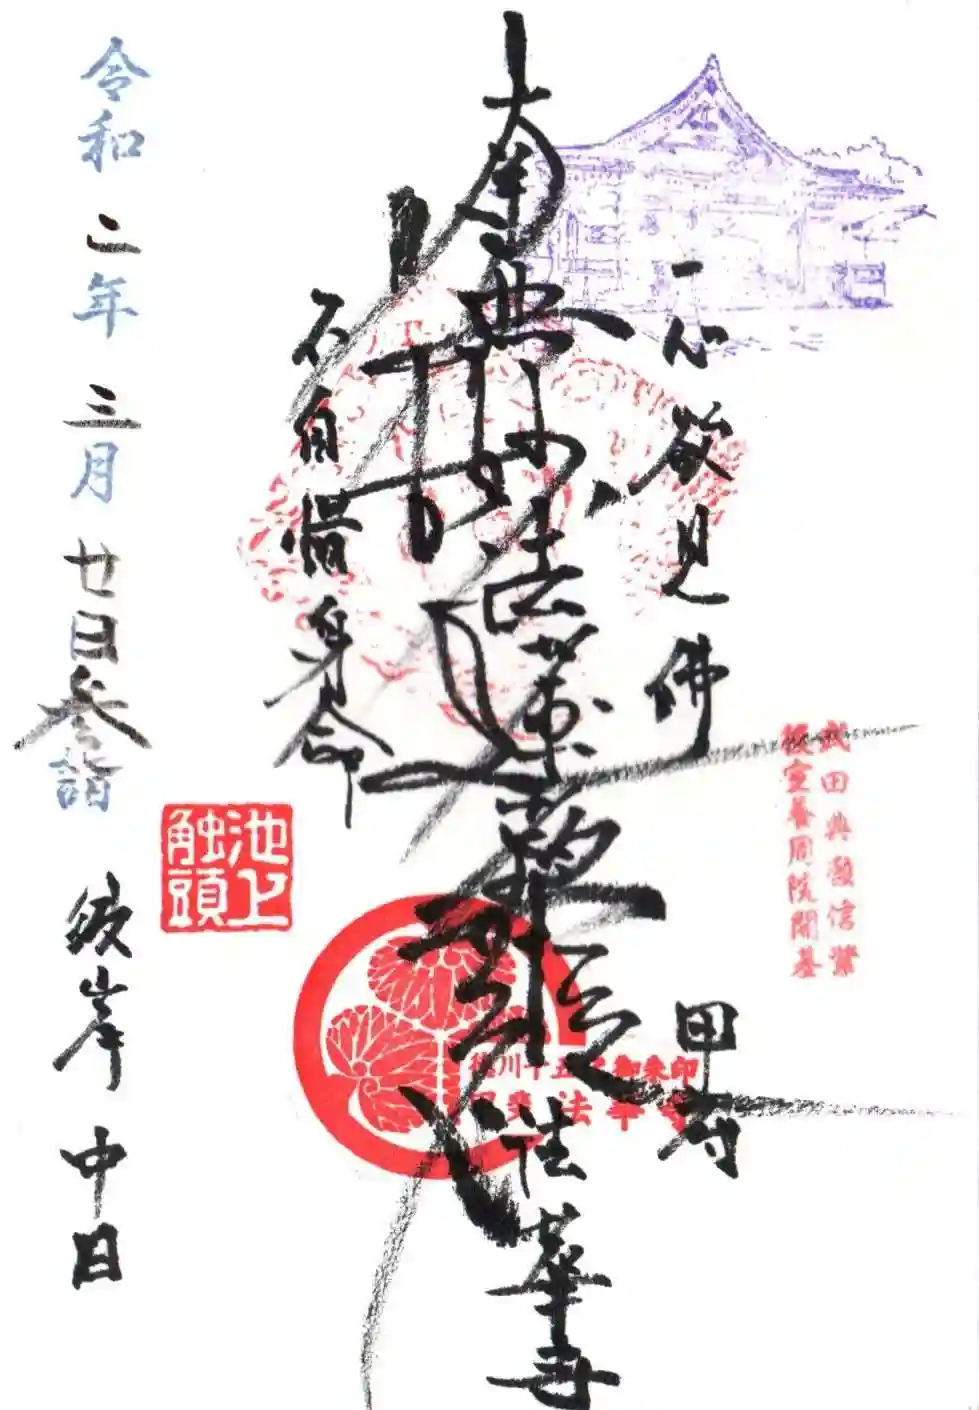 一心欲見佛
甲府
武田典厩信繁
後室養周院開基
南無妙法蓮華経
法華寺
徳川十五代御朱印
甲斐 法華寺
不自惜身命
池上
触頭
令和二年三月廿日参詣 彼岸中日